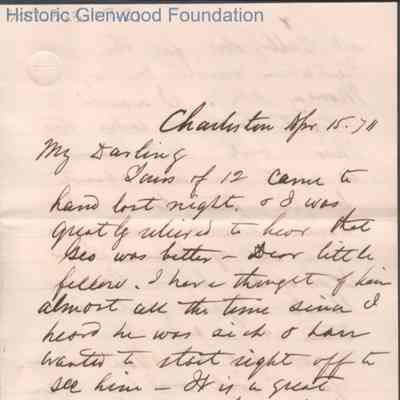 Historic Glenwood Foundation
Charleston Apr. 15. 70
My Darling
Yours of 12 came to
hand last night. & I was
greatly relieved to hear that
Geo was better - Dear little
fellow. I have thought of him
almost all the time since I
heard he was sick & have
wanted to start right off to
see him - It is a great